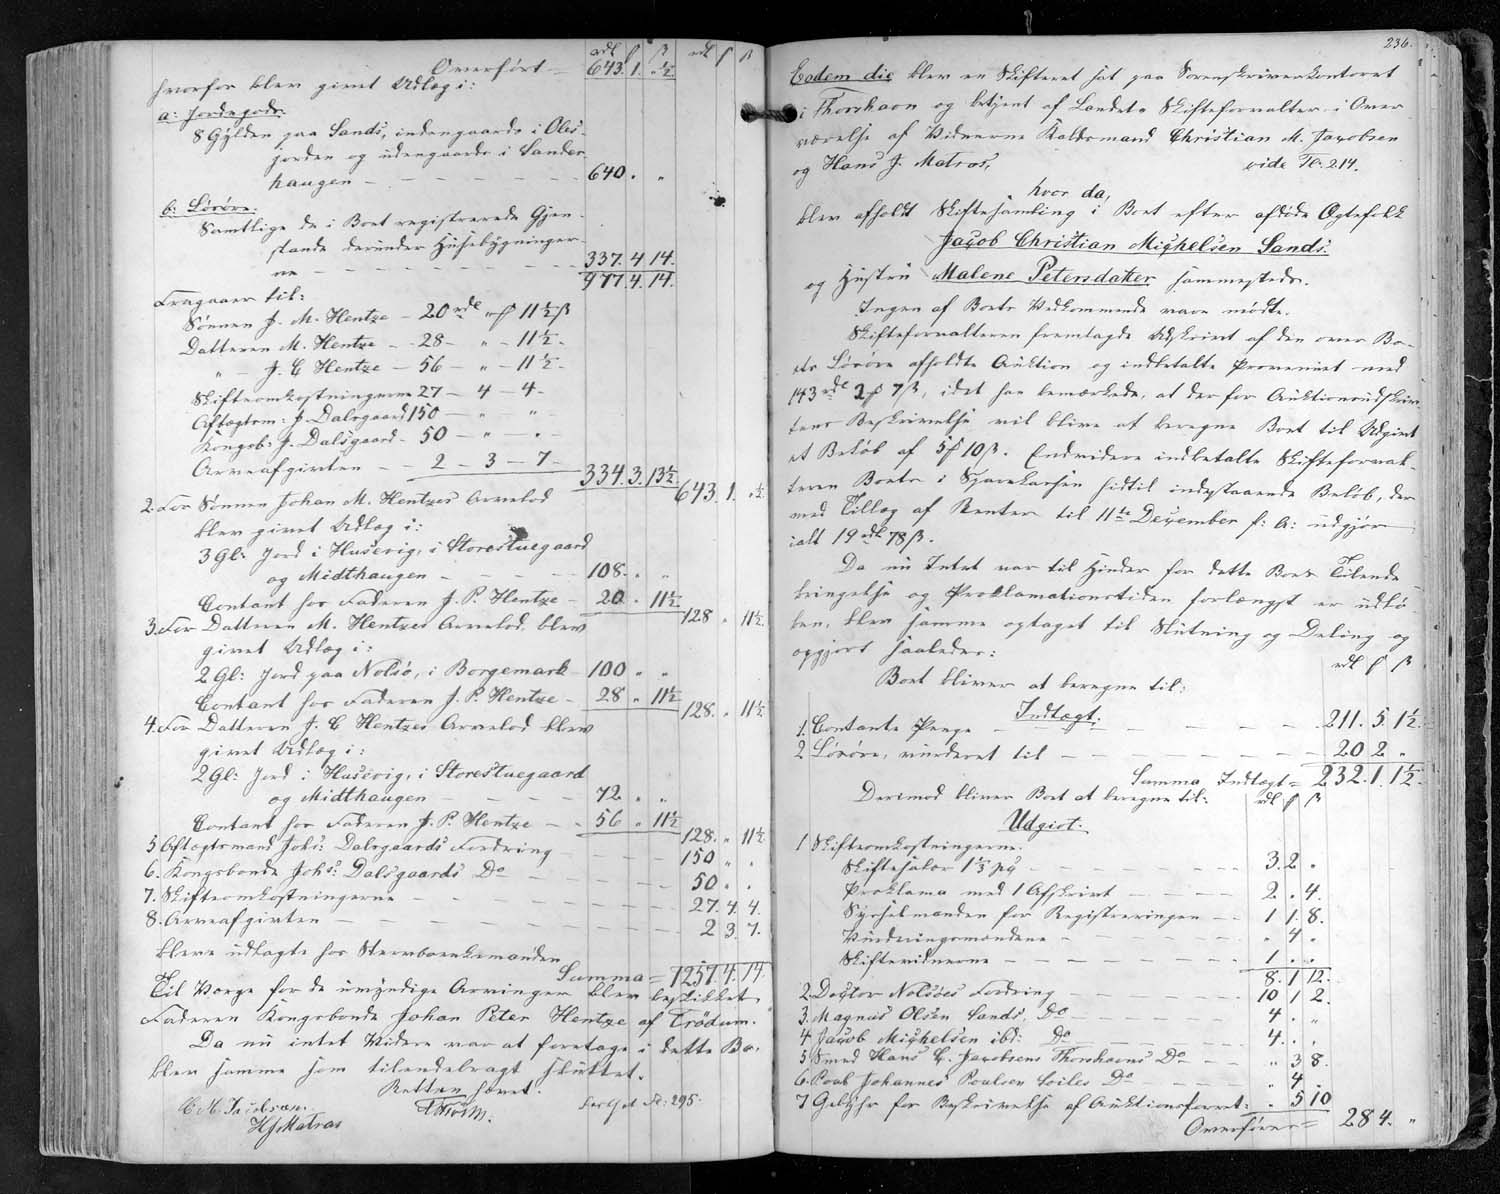 rdl ƒ ß rdl ƒ ß
Overført — 643. 1. „ ½
hvorfor blev givet Udlæg i:
a: Jordegods.
8 Gylden paa Sands, indengaards i Oles-
jorden og udengaards i Sander-
haugen — 640 „ „
b: Løsøre.
Samtlige de i Boet registrerede Gjen-
stande derunder Husebygninger-
ne — 337. 4. 14.
977. 4. 14.
Fragaaer til:
Sønnen J. M. Hentze — 20 rdl „ ƒ 11½ ß
Datteren M. Hentze — 28 — „ — 11½.
„ — J. C Hentze — 56 — „ — 11½.
Skifteomkostningerne 27 — 4 — 4.
Aftægtsm: J. Dalsgaard 150 — „ „
Kongsb: J. Dalsgaard — 50 — „ — „
Arveafgivten — 2 — 3 — 7 —
334. 3. 13½. 643. 1. „ ½
2. For Sønnen Johan M. Hentzes Arvelod
blev givet Udlæg i:
3 Gl: Jord i Husevig, i Storestuegaard
og Midthaugen — 108. „ „
Contant hos Faderen J. P. Hentze — 20 „ 11½
128 „ 11½.
3. For Datteren M. Hentzes Arvelod blev
givet Udlæg i:
2 Gl: Jord paa Nolsø, i Borgemark — 100 „ „
Contant hos Faderen J. P. Hentze — 28 „ 11½
128. „ 11½
4. For Datteren J. C Hentzes Arvelod blev
givet Udlæg i:
2 Gl: Jord i Husevig, i Storestuegaard
og Midthaugen — 72 „ „
Contant hos Faderen J. P. Hentze — 56 „ 11½
128. „ 11½
5 Aftægtsmand Johs: Dalsgaards Fordring — 150 „ „
6. Kongsbonde Johs: Dalsgaards Do — 50 „ „
7. Skifteomkostningerne — 27. 4. 4.
8. Arveafgivten — 2 3. 7.
bleve udlagte hos Stervboenkemanden
Summa = 1257. 4. 14
Til Værge for de umyndige Arvinger blev beskikket
Faderen Kongsbonde Johan Peter Hentze af Trødum.
Da nu intet Videre var at foretage i dette Bo,
blev samme som tilendebragt sluttet.
Retten hævet.
C. M. Jacobsen. HJMatras
Fol: 295.
236.
Eodem die blev en Skifteret sat paa Sorenskriverkontoret
i Thorshavn og betjent af Landets Skifteforvalter i Over-
værelse af Vidnerne Kaldsmand Christian M. Jacobsen
og Hans J. Matras, vide Fl: 214.
hvor da,
blev afholdt Skiftesamling i Boet efter afdøde Ægtefolk
Jacob Christian Michelsen Sands.
og Hustru Malene Petersdatter sammesteds.
Ingen af Boets Vedkommende vare mødte.
Skifteforvalteren fremlagde Udskrivt af den over Bo-
ets Løsøre afholdte Auktion og indbetalte Provenuet med
143 rdl 2 ƒ 7 ß, idet han bemærkede, at der for Auktionsudskriv-
tens Beskrivelse vil blive at beregne Boet til Udgivt
et Beløb af 5 ƒ 10 ß. Endvidere indbetalte Skifteforval-
teren Boets i Sparekassen hidtil indestaaende Beløb, der
med Tillæg af Renter til 11te December f: A: udgjør
ialt 19 rdl 78 ß.
Da nu Intet var til Hinder for dette Boes Tilende-
bringelse og Proklamationstiden forlængst er udlø-
ben, blev samme optaget til Slutning og Deling og
opgjort saaledes:
rdl ƒ ß
Boet bliver at beregne til:
Indtægt:
1. Contante Penge — 211. 5. 1½
2 Løsøre, vurderet til — 20 2 „
Summa Indtægt = 232. 1. 1½.
Derimod bliver Boet at beregne til: rdl ƒ ß
Udgivt:
1 Skifteomkostningerne.
Skiftesalær 1½ pC — 3. 2 „
Proklama med 1 Afskrivt — 2 „ 4.
Sysselmanden for Registreringen — 1 1. 8.
Vurderingsmændene — „ 4 „
Skiftevidnerne — 1 „ „
8. 1 12.
2. Doctor Nolsøes Fordring — 10 1 2.
3. Magnus Olsen Sands, Do — 4. „ „
4 Jacob Michelsen ibd: Do — 4. „ „
5 Smed Hans C. Jacobsens Thorshavns Do — „ 3 8.
6. Poul Johannes Poulsen Do — „ 4 „
7 Gebyhr for Beskrivelse af Auktionsforret: „ 5 10
Overføres = 28 4. „